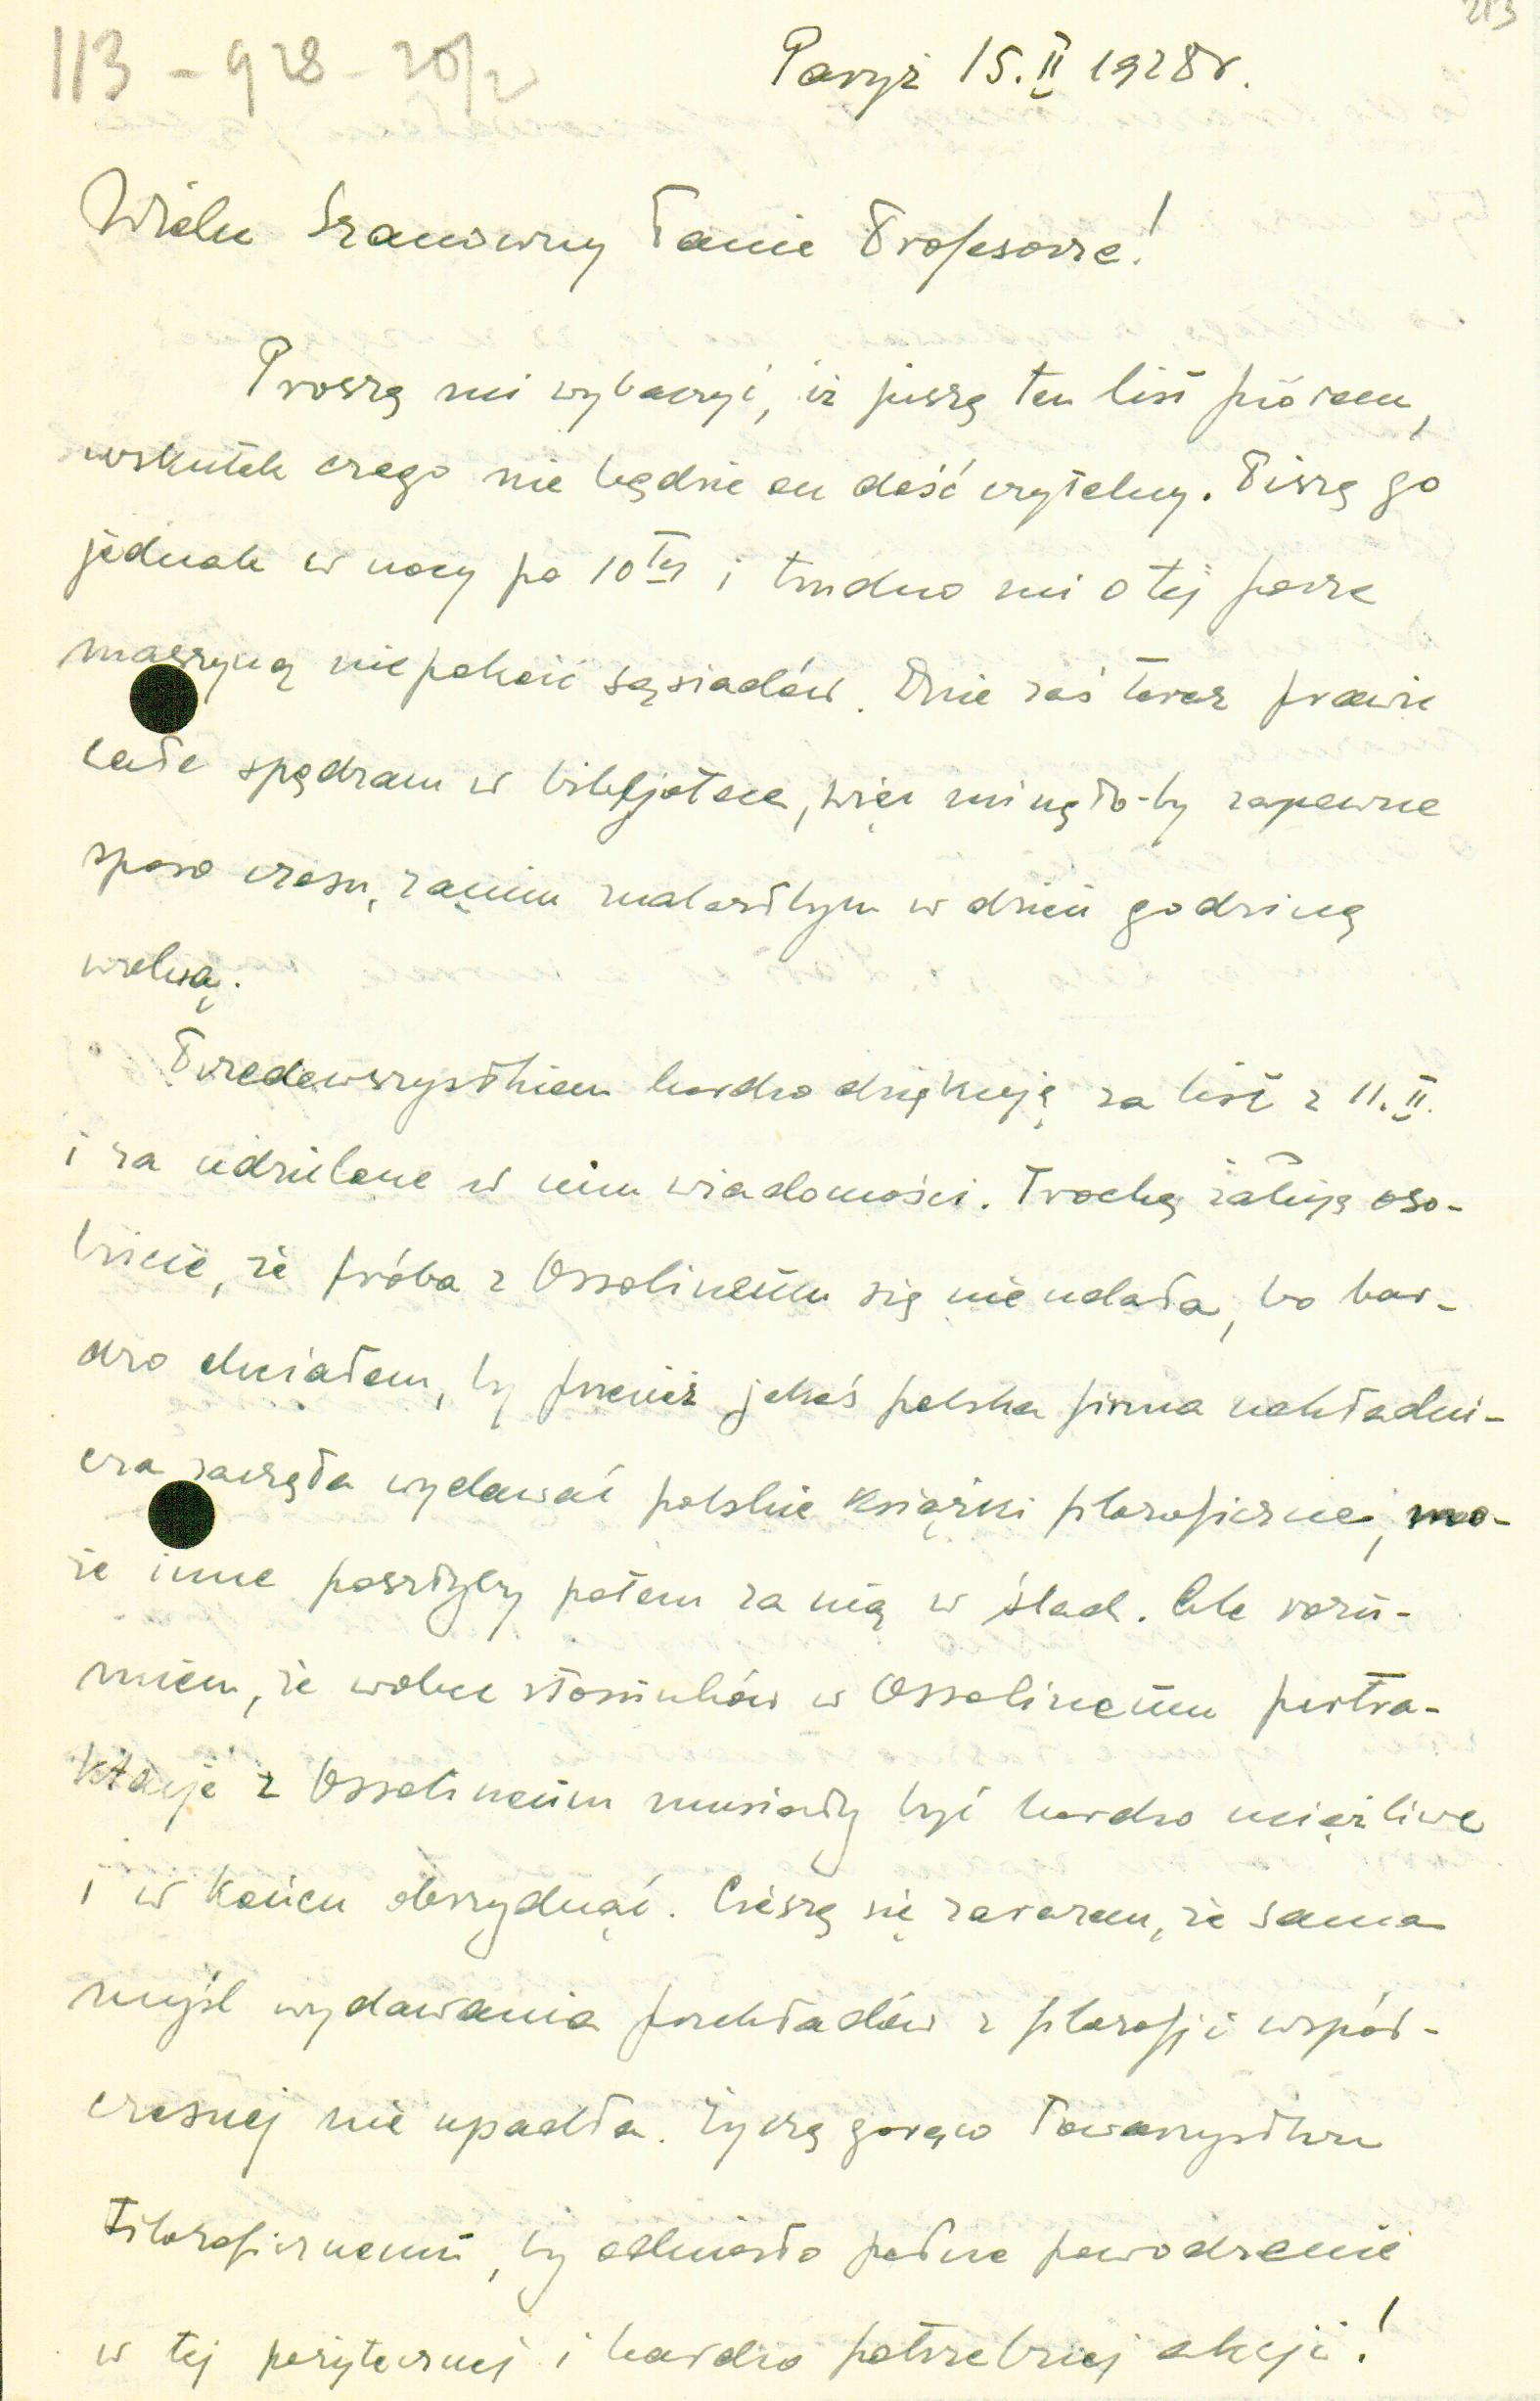 213
113-928-20/2
Paryż 15.II 1928r.
Wielce Szanowny Panie Profesorze!
Proszę mi wybaczyć, iż piszę ten list piórem,
wskutek czego nie będzie on dość czytelny. Piszę go
jednak w nocy po 10tej i trudno mi o tej porze
maszyną niepokoić sąsiadów. Dnie zaś teraz prawie
całe spędzam w bibljotece, więc minęło-by zapewne
sporo czasu, zanim znalazłbym w dzień godzinę
wolną.
Przedewszystkiem bardzo dziękuję za list z 11.II.
i za udzielone w nim wiadomości. Trochę żałuję oso-
biście, że próba z Ossolineum się nie udała, bo bar-
dzo chciałem, by przecież jakaś polska firma nakładni-
cza zaczęła wydawać polskie książki filozoficzne, mo-
że inne poszłyby potem za nią w ślad. Ale rozu-
miem, że wobec stosunków w Ossolineum pertra-
ktacje z Ossolineum musiały być bardzo uciążliwe
i w końcu obrzydnąć. Cieszę się zarazem, że sama
myśl wydawania przekładów z filozofji współ-
czesnej nie upadła. Życzę gorąco Towarzystwu
Filozoficznemu, by odniosło pełne powodzenie
w tej pożytecznej i bardzo potrzebnej akcji!